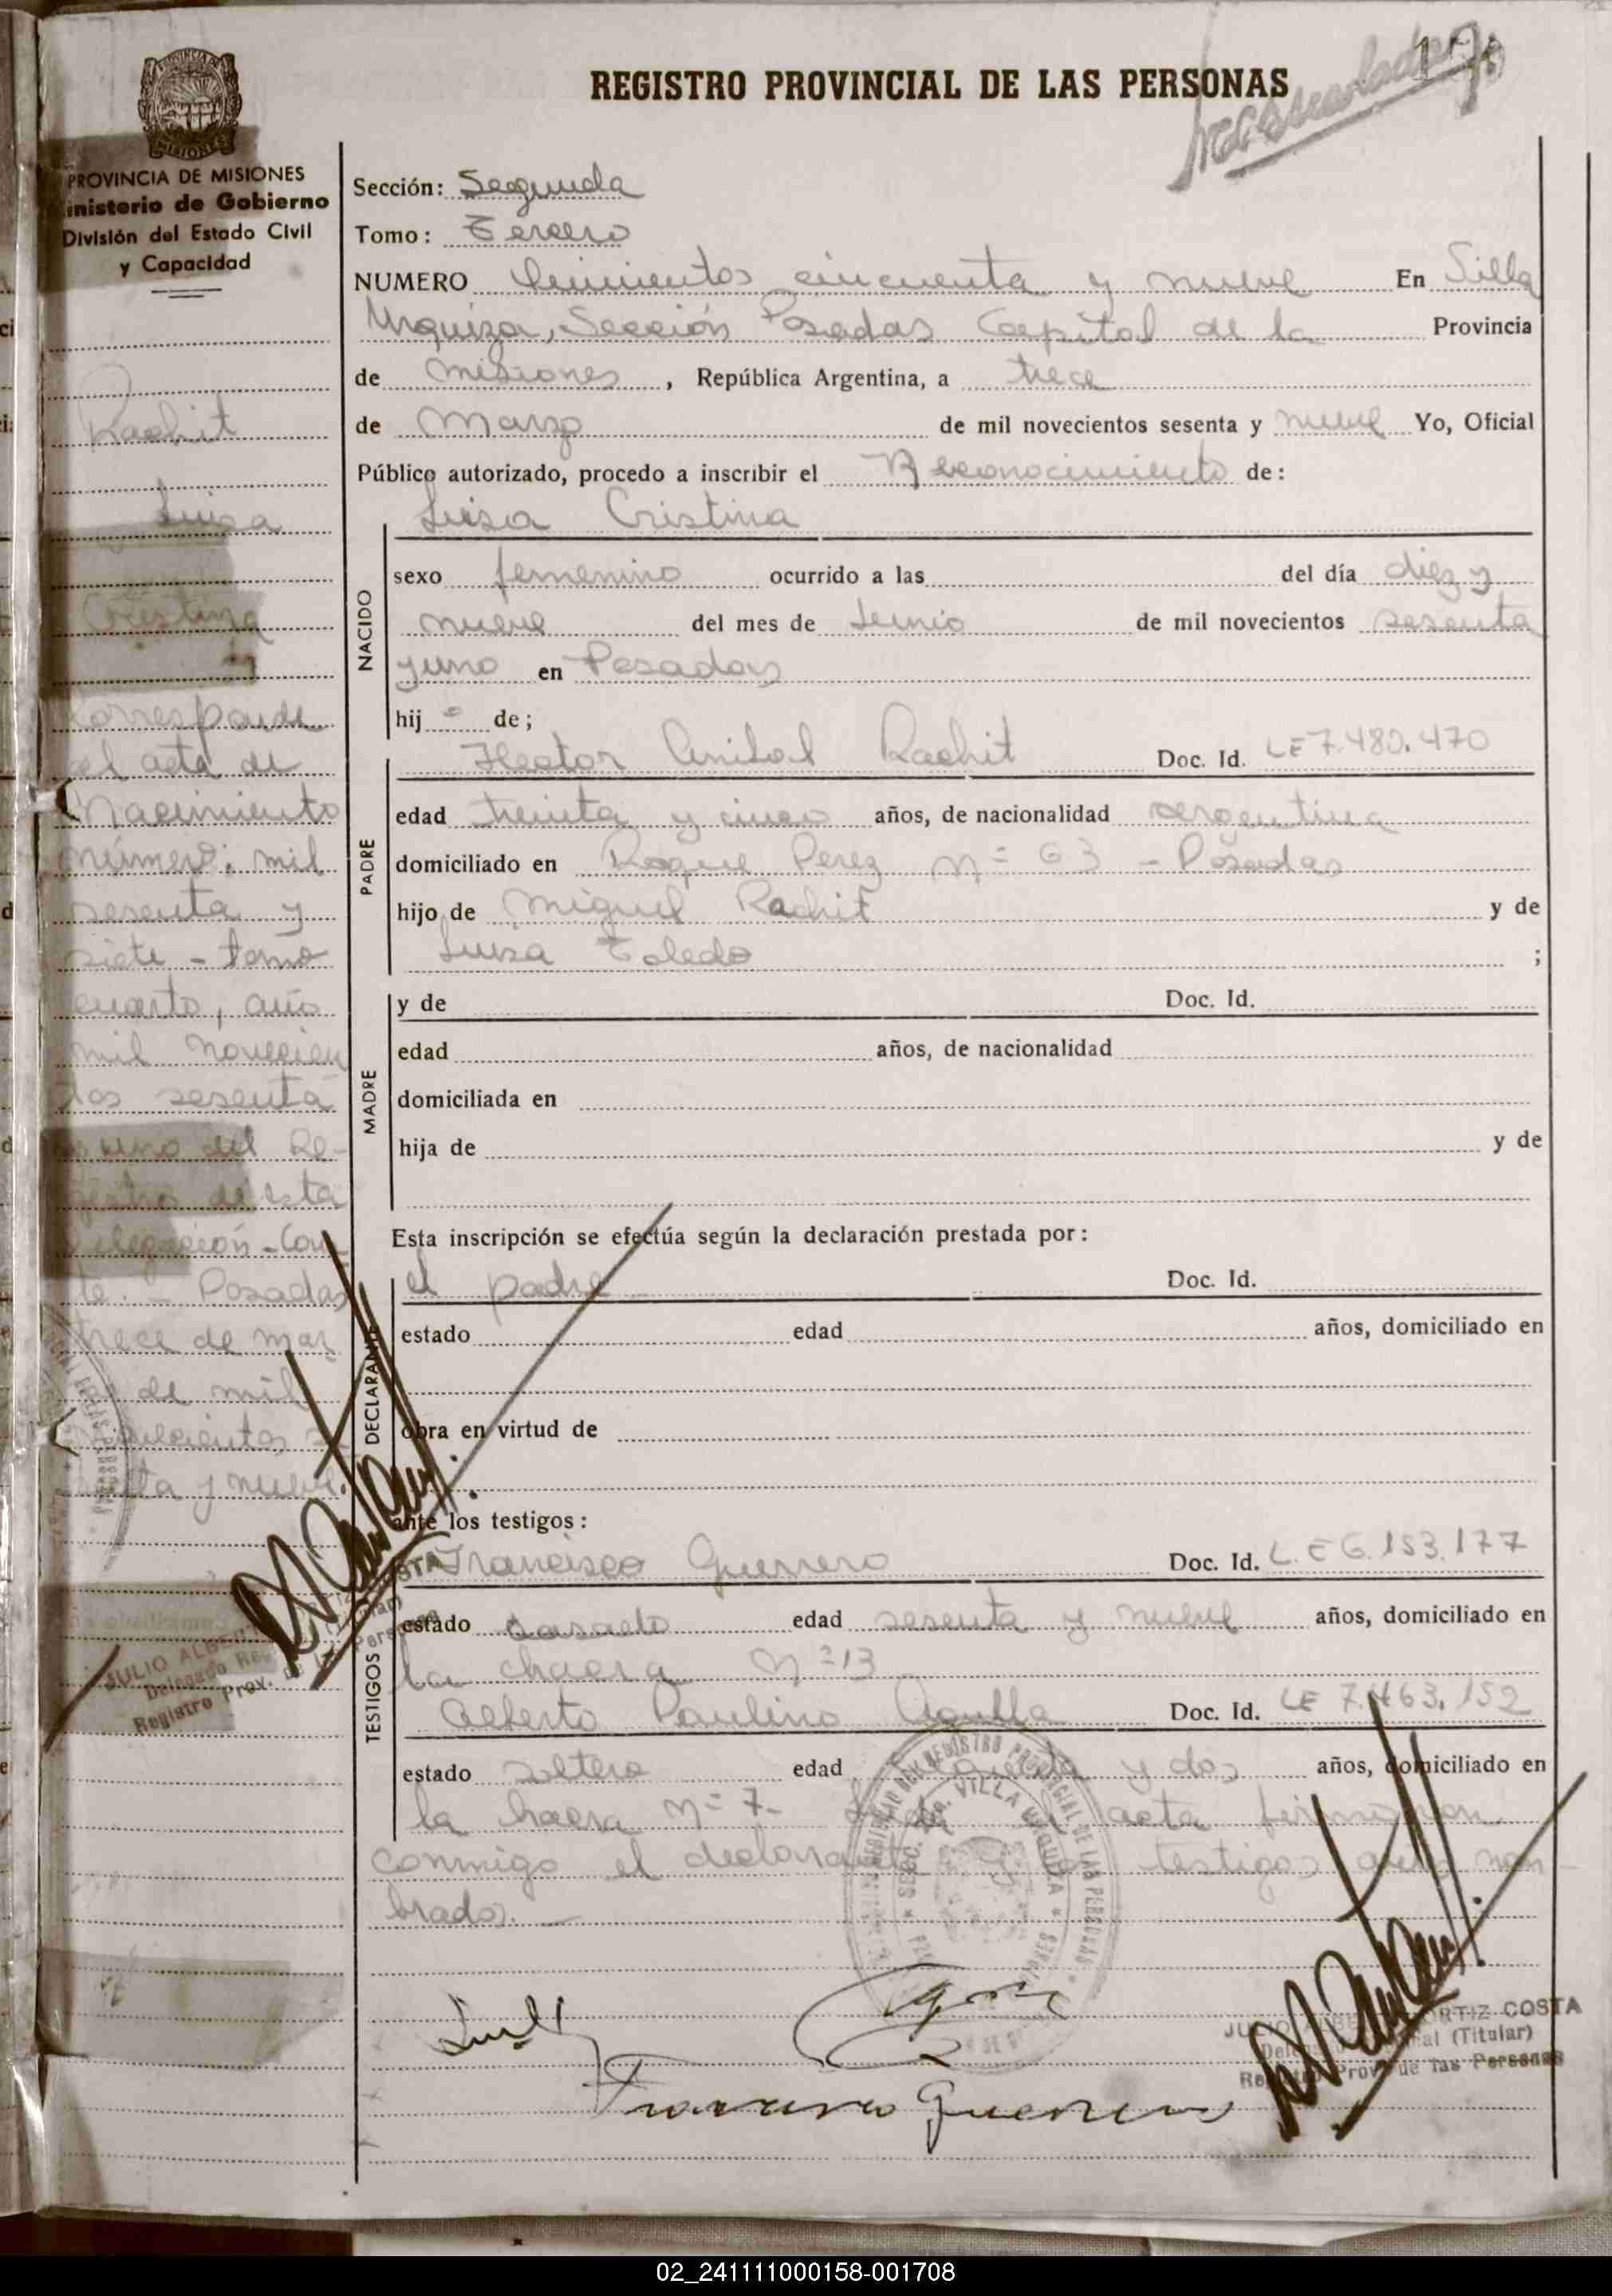 REGISTRO PROVINCIAL DE LAS PERSONAS
PROVINCIA DE MISIONES
Ministerio de Gobierno
División del Estado Civil
y Capacidad
Rachit
Luisa
Cristina
Corresponde
el acta de
Nacimiento
número: mil
sesenta y
siete - tomo
cuarto, año
mil novecien
tos sesenta
y uno del Re-
gistro de esta
Delegación - Cons
te. - Posadas,
trece de mar
zo de mil
novecientos se
senta y nueve.
JULIO ALBERTO ORTIZ COSTA
Registro Prov. de las Personas
Sección: Segunda
Tomo: Tercero
NUMERO Quinientos cincuenta y nueve En Villa
Urquiza, Sección Posadas Capital de la Provincia
de Misiones, República Argentina, a trece
de Marzo de mil novecientos sesenta y nueve Yo, Oficial
Público autorizado, procedo a inscribir el Reconocimiento de:
Luisa Cristina
NACIDO
sexo femenino ocurrido a las del día diez y
nueve del mes de Junio de mil novecientos sesenta
y uno en Posadas
hij de;
PADRE
Hector Anibal Rachit Doc. Id. LE 7.480.470
edad treinta y cinco años, de nacionalidad argentina
domiciliado en Roque Perez Nº 63 - Posadas
hijo de Miguel Rachit y de
Luisa Toledo ;
MADRE
y de Doc. Id.
edad años, de nacionalidad
domiciliada en
hija de y de
Esta inscripción se efectúa según la declaración prestada por:
DECLARANTE
el padre Doc. Id.
estado edad años, domiciliado en
obra en virtud de
ante los testigos:
TESTIGOS
Francisco Guerrero Doc. Id. L.E 6.153.177
estado casado edad sesenta y nueve años, domiciliado en
la chacra Nº 13
Alberto Paulino Doc. Id. LE 7.463.152
estado soltero edad y dos años, domiciliado en
la hacra Nº 7- el acta firmaron
conmigo el declarante y los testigos antes nom
brados. -
Francisco Guerrero
JULIO ALBERTO ORTIZ COSTA
(Titular)
Registro Prov. de las Personas
02_241111000158-001708